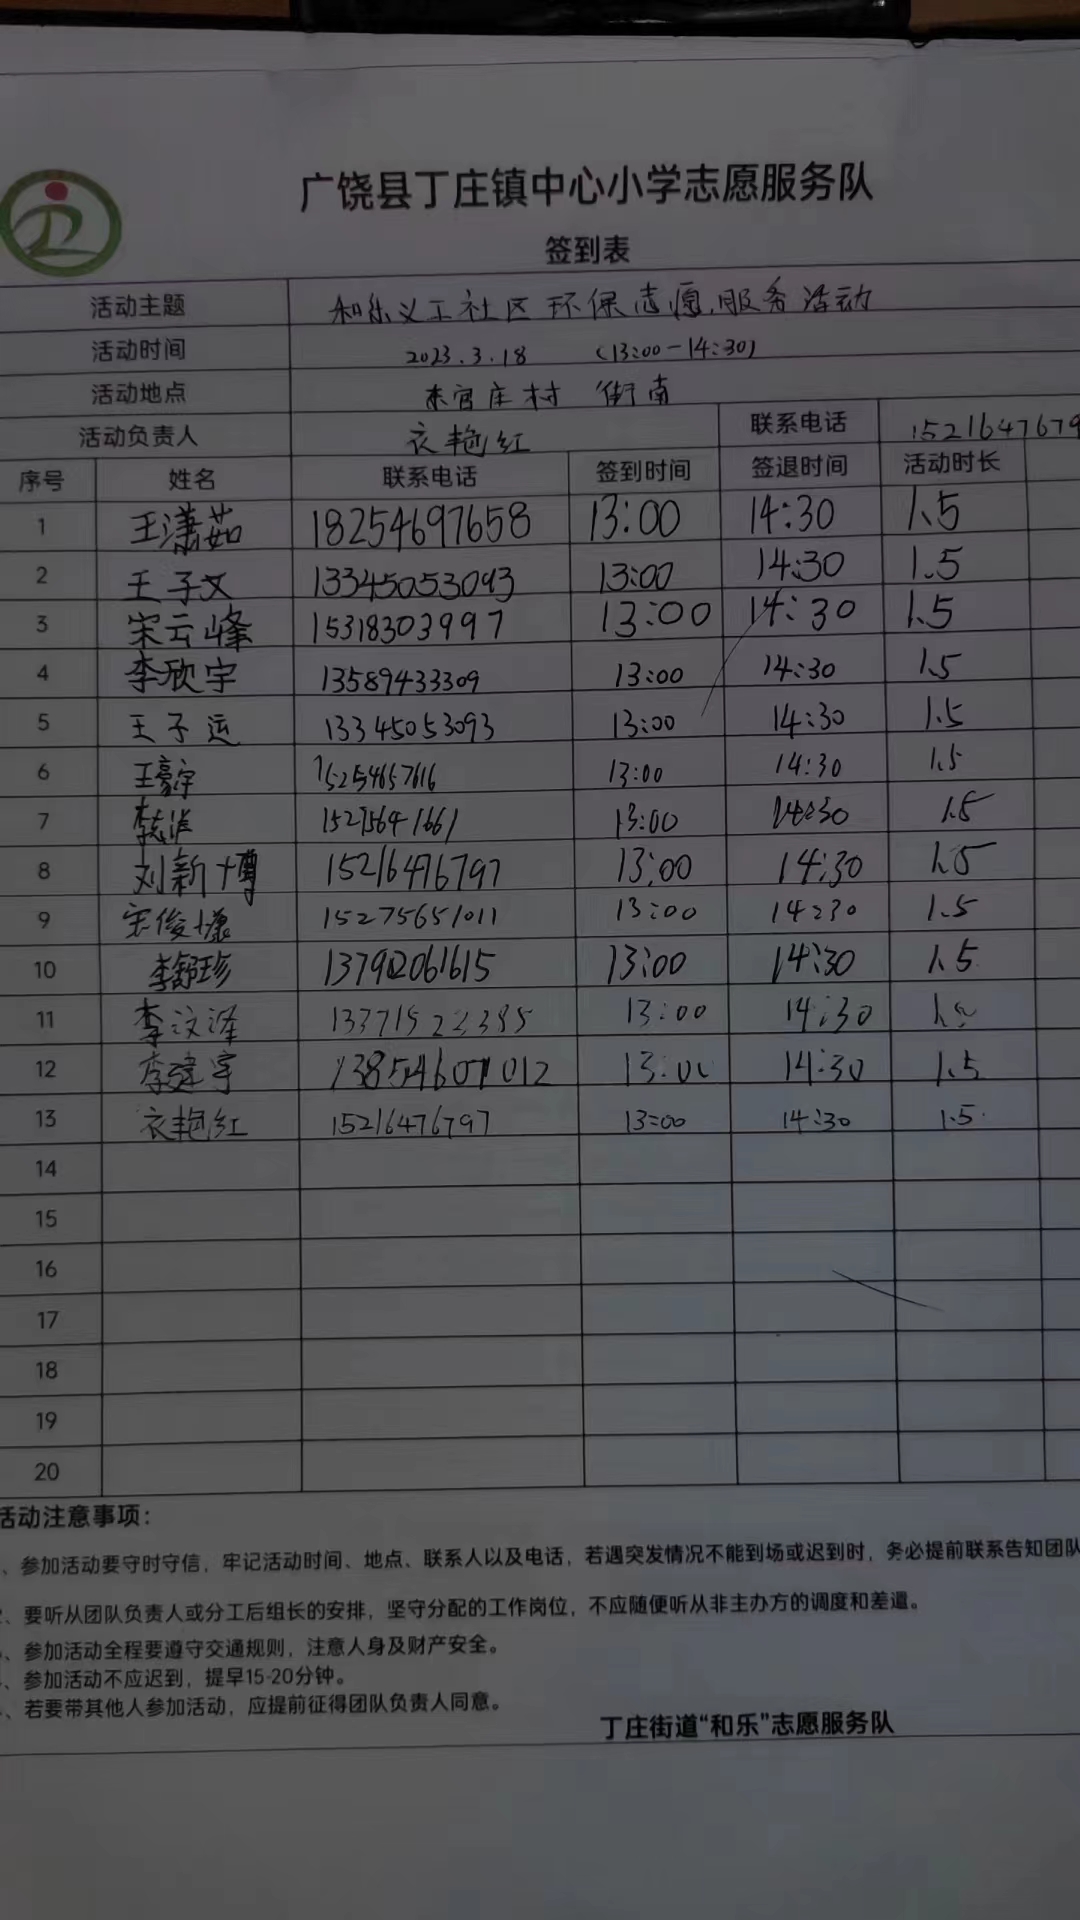 广饶县丁庄镇中心小学志愿服务队
签到表
活动主题 和乐义工社区环保志愿服务活动
活动时间 2023.3.18 (13:00-14:30)
活动地点 东官庄村 街南
活动负责人 衣艳红 联系电话 1521647679
序号 姓名 联系电话 签到时间 签退时间 活动时长
1 王潇茹 18254697658 13:00 14:30 1.5
2 王子文 13345053093 13:00 14:30 1.5
3 宋云峰 15318303997 13:00 14:30 1.5
4 李欣宇 13589433309 13:00 14:30 1.5
5 王子运 13345053093 13:00 14:30 1.5
6 王豪宇 15254657616 13:00 14:30 1.5
7 13:00 14:30 1.5
8 刘新博 15216476797 13:00 14:30 1.5
9 宋俊慷 15275651011 13:00 14:30 1.5
10 李舒珍 13:00 14:30 1.5
11 李汶泽 13371522385 13:00 14:30 1.5
12 李建宇 13:00 14:30 1.5
13 衣艳红 15216476797 13:00 14:30 1.5
14
15
16
17
18
19
20
活动注意事项：
、参加活动要守时守信，牢记活动时间、地点、联系人以及电话，若遇突发情况不能到场或迟到时，务必提前联系告知团队
、要听从团队负责人或分工后组长的安排，坚守分配的工作岗位，不应随便听从非主办方的调度和差遣。
、参加活动全程要遵守交通规则，注意人身及财产安全。
、参加活动不应迟到，提早15-20分钟。
、若要带其他人参加活动，应提前征得团队负责人同意。
丁庄街道“和乐”志愿服务队